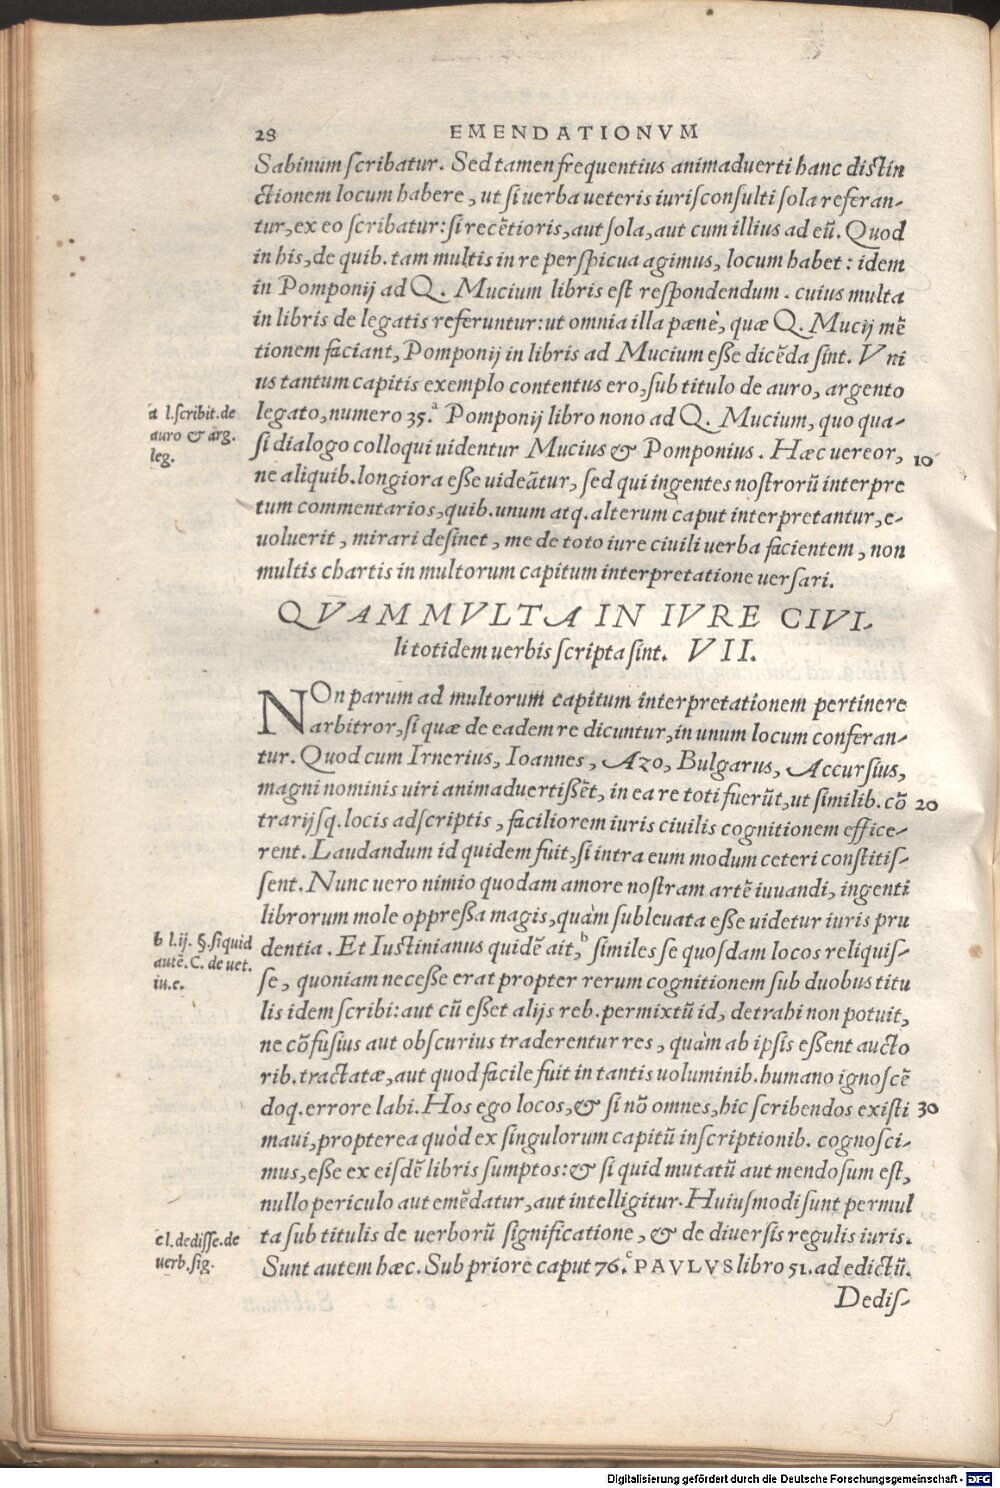 28 EMENDATIONVM
Sabinum scribatur. Sed tamen frequentius animaduerti hanc distin
ctionem locum habere, ut si uerba ueteris iurisconsulti sola referan-
tur, ex eo scribatur: si recẽtioris, aut sola, aut cum illius ad eũ. Quod
in his, de quib. tam multis in re perspicua agimus, locum habet: idem
in Pomponij ad Q. Mucium libris est respondendum. cuius multa
in libris de legatis referuntur: ut omnia illa pænè, quæ Q. Mucij mẽ
tionem faciant, Pomponij in libris ad Mucium esse dicẽda sint. Vni
us tantum capitis exemplo contentus ero, sub titulo de auro, argento
a l.scribit.de
auro & arg.
leg.
legato, numero 35.ᵃ Pomponij libro nono ad Q. Mucium, quo qua-
si dialogo colloqui uidentur Mucius & Pomponius. Hæc uereor, 10
ne aliquib. longiora esse uideãtur, sed qui ingentes nostrorũ interpre
tum commentarios, quib. unum atq. alterum caput interpretantur, e-
uoluerit, mirari desinet, me de toto iure ciuili uerba facientem, non
multis chartis in multorum capitum interpretatione uersari.
QVAM MVLTA IN IVRE CIVI-
li totidem uerbis scripta sint. VII.
NOn parum ad multorum capitum interpretationem pertinere
arbitror, si quæ de eadem re dicuntur, in unum locum conferan-
tur. Quod cum Irnerius, Ioannes, Azo, Bulgarus, Accursius,
magni nominis uiri animaduertissẽt, in ea re toti fuerũt, ut similib. cõ 20
trarijsq. locis adscriptis, faciliorem iuris ciuilis cognitionem effice-
rent. Laudandum id quidem fuit, si intra eum modum ceteri constitis-
sent. Nunc uero nimio quodam amore nostram artẽ iuuandi, ingenti
librorum mole oppressa magis, quàm subleuata esse uidetur iuris pru
b l.ij. §.si quid
autẽ.C. de uet.
iu.e.
dentia. Et Iustinianus quidẽ ait,ᵇ similes se quosdam locos reliquis-
se, quoniam necesse erat propter rerum cognitionem sub duobus titu
lis idem scribi: aut cũ esset alijs reb. permixtũ id, detrahi non potuit,
ne cõfusius aut obscurius traderentur res, quàm ab ipsis essent aucto
rib. tractatæ, aut quod facile fuit in tantis uoluminib. humano ignoscẽ
doq. errore labi. Hos ego locos, & si nõ omnes, hic scribendos existi 30
maui, propterea quòd ex singulorum capitũ inscriptionib. cognosci-
mus, esse ex eisdẽ libris sumptos: & si quid mutatũ aut mendosum est,
nullo periculo aut emẽdatur, aut intelligitur. Huiusmodi sunt permul
c l.dedisse.de
uerb.sig.
ta sub titulis de uerborũ significatione, & de diuersis regulis iuris.
Sunt autem hæc. Sub priore caput 76.ᶜ PAVLVS libro 51. ad edictũ.
Dedis-
Digitalisierung gefördert durch die Deutsche Forschungsgemeinschaft - DFG